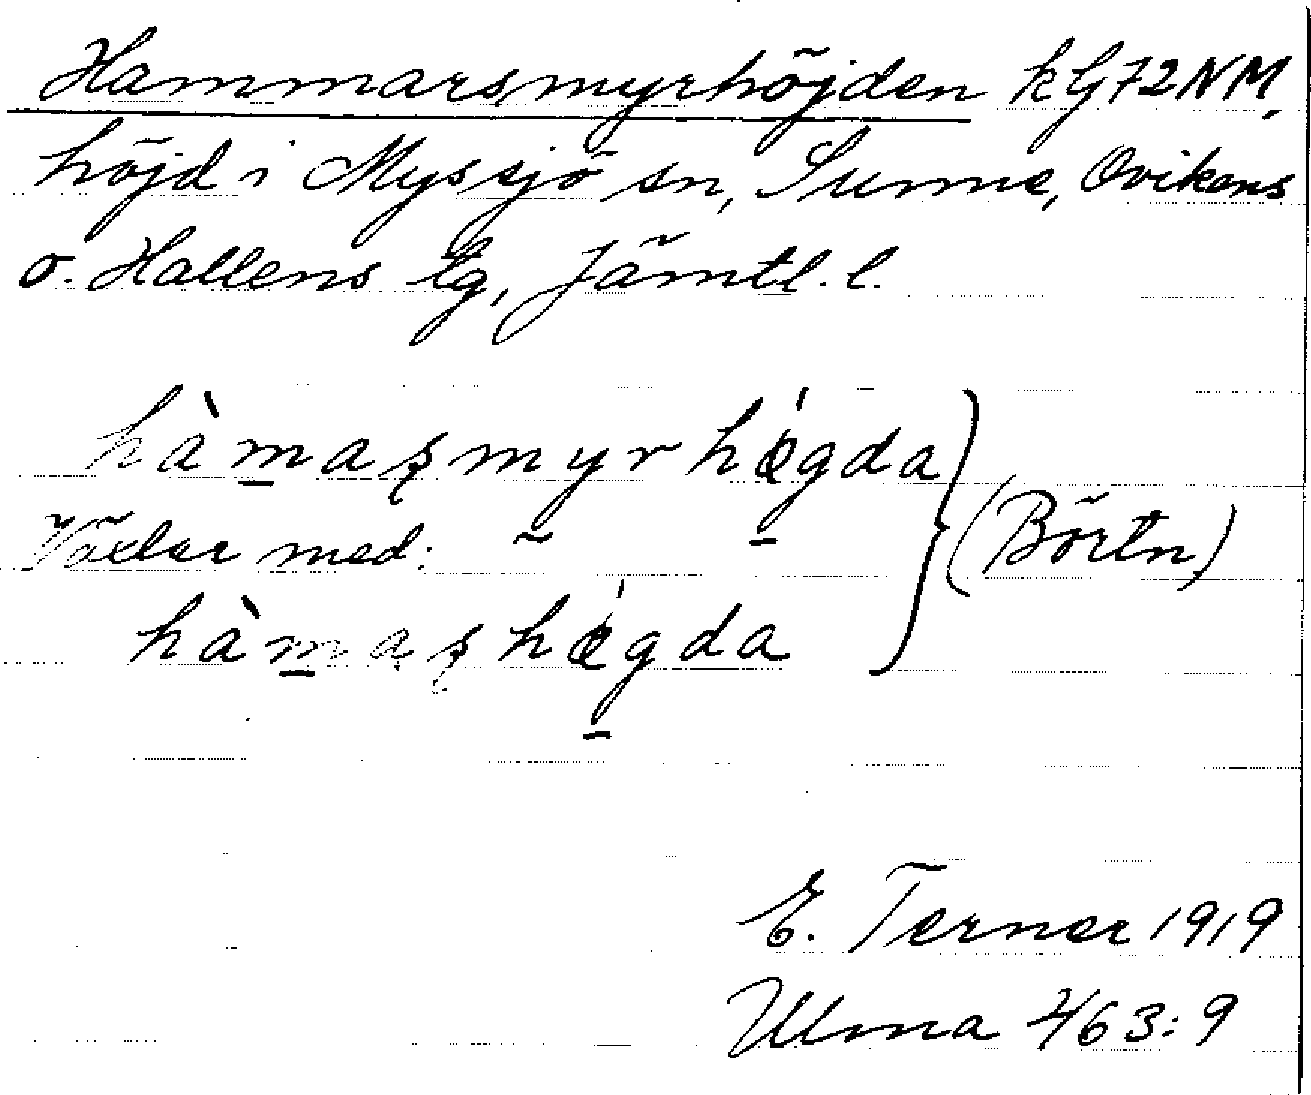 Hammarsmyrhöjden kG72NM,
höjd i Myssjö sn, Sunne, Ovikens
o. Hallens tg, Jämtl. l.
hàmaʂmyrhǿgda
Växlar med: (Börtn)
hàmaʂhǿgda
E. Terner 1919
Ulma 463:9